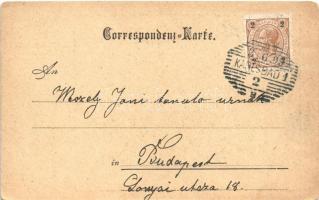 Correspondenz-Karte.
2 2
KARLSBAD 1
2
An
Mezely Jani tanuló urnak
in
Budapest
utcza 18.